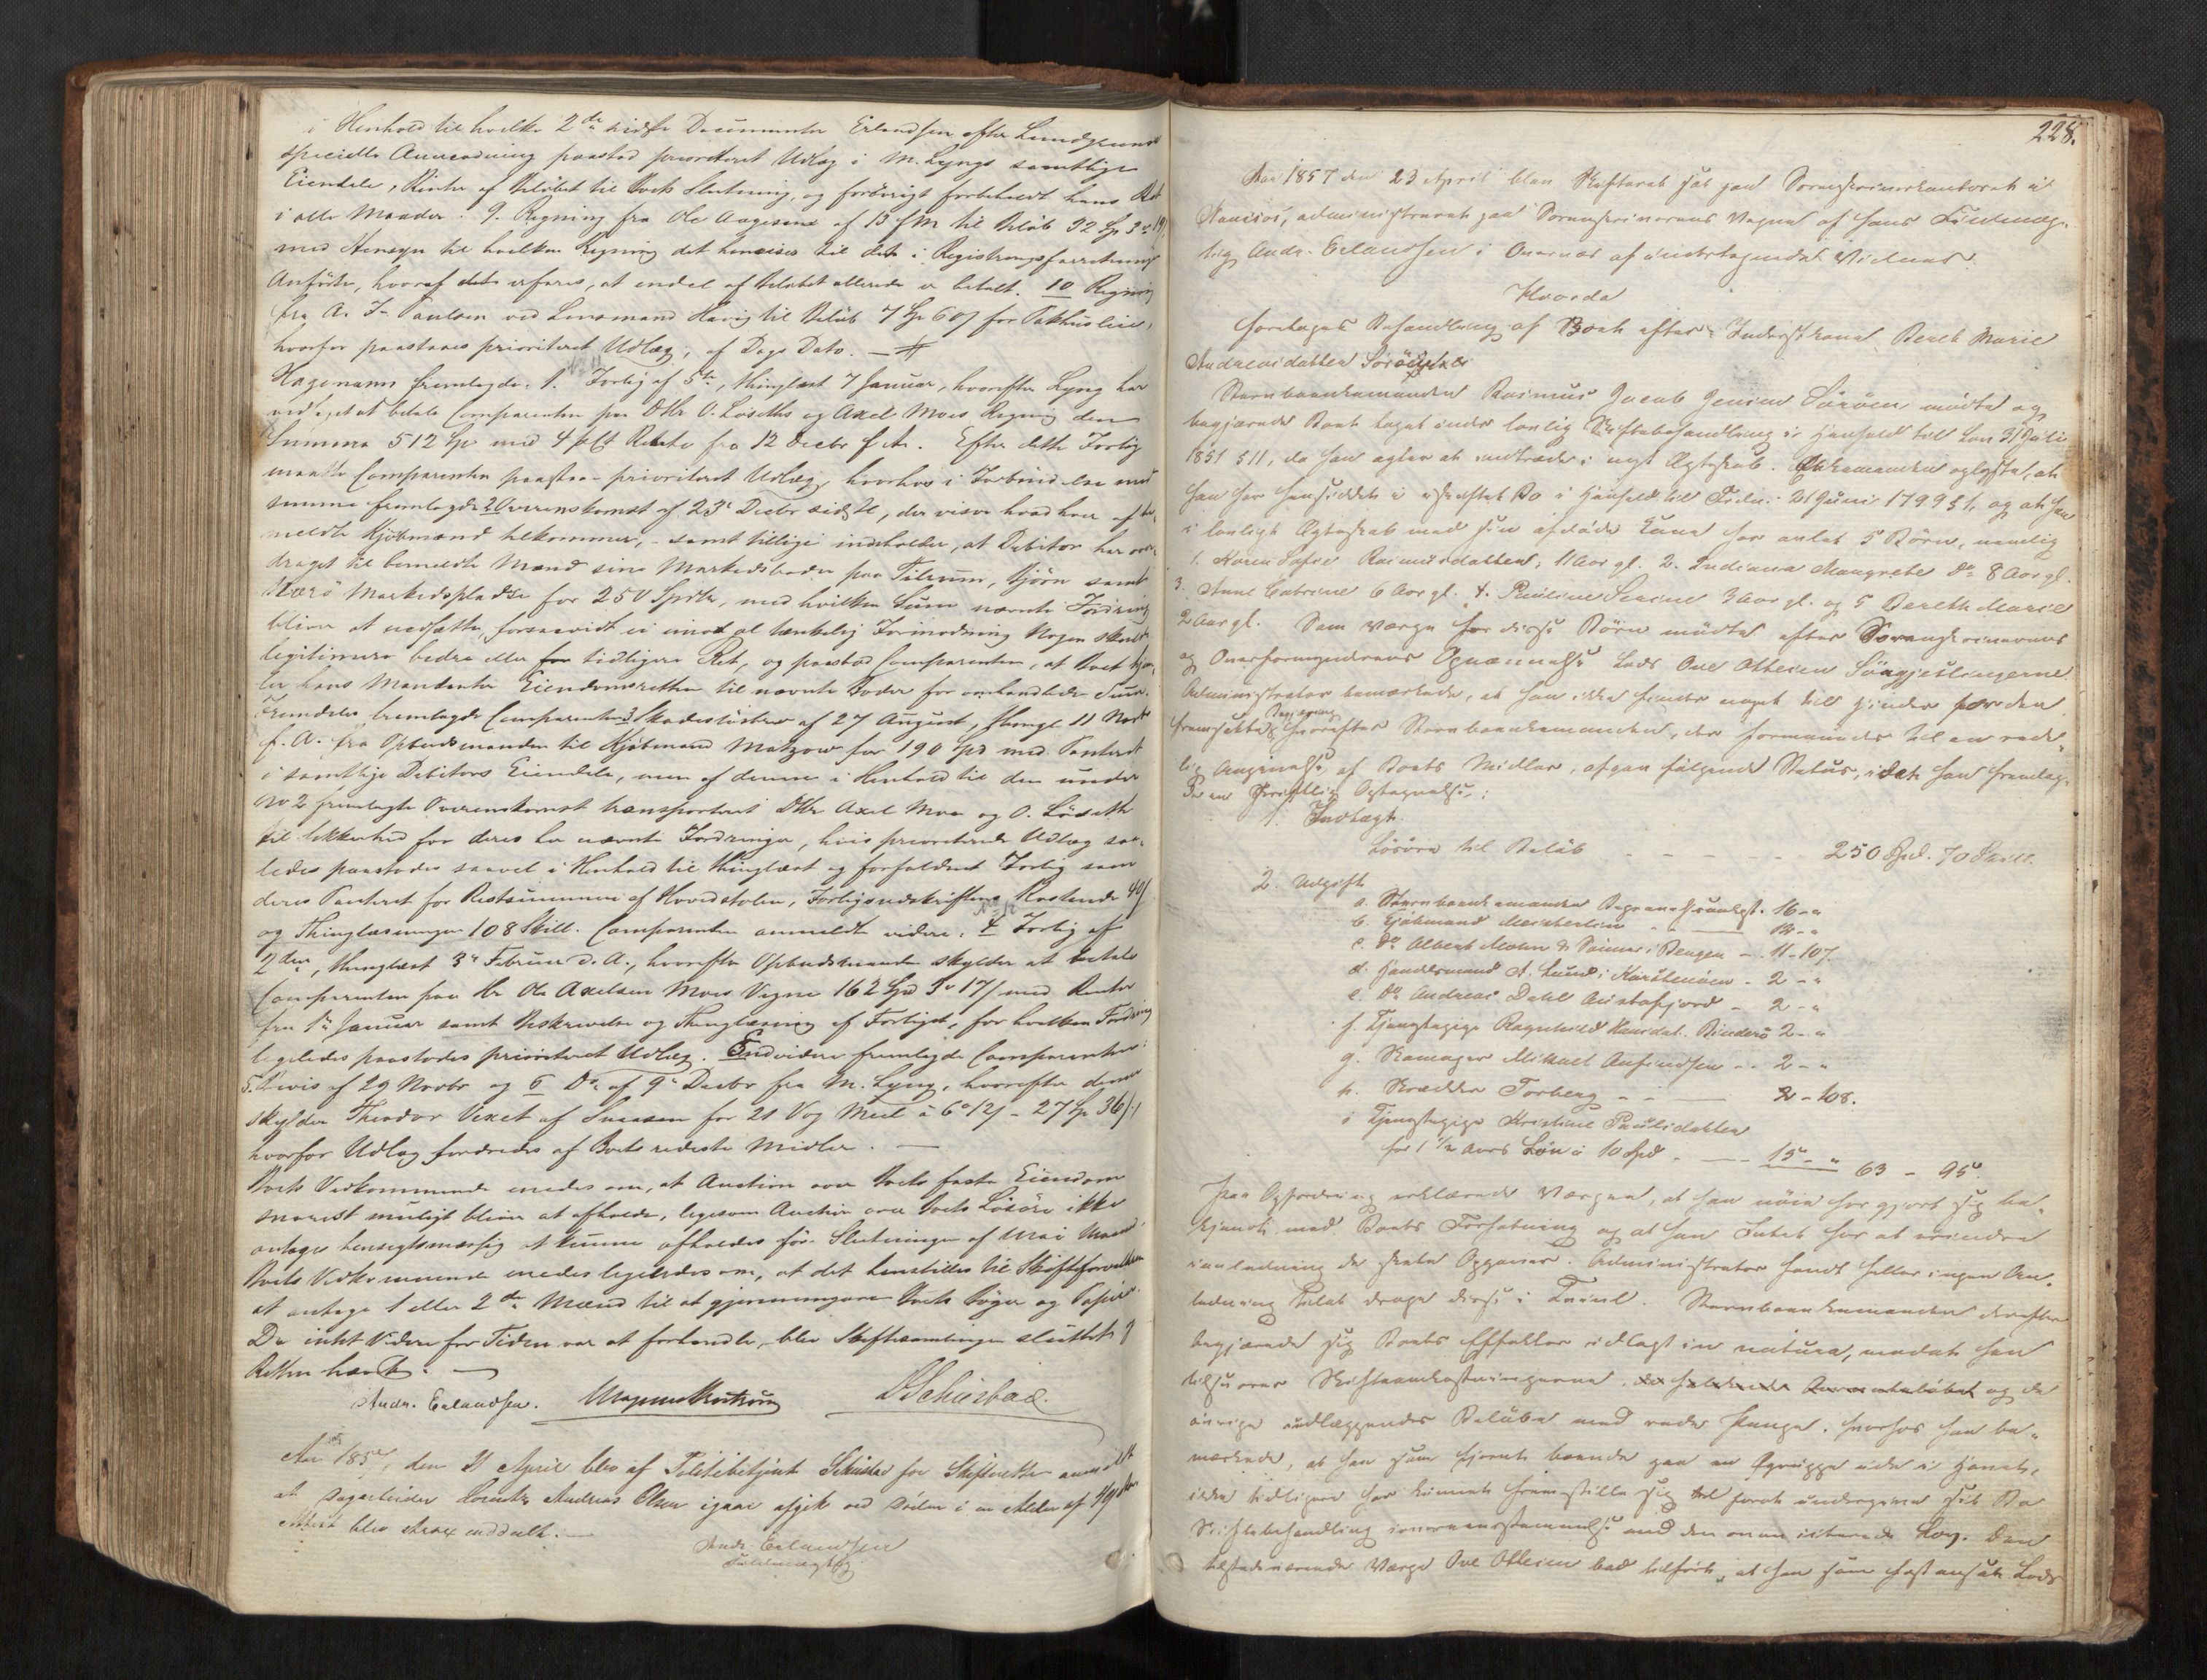 i Henhold til hvilke 2de sidste Documenter Erlandsen efter Lundgreens
specielle Anmodning paastod prioriteret Udlæg i M. Lyngs samtlige
Eiendele, Renter af Beløbet til Boets Slutning, og forøvrigt forbeholdt hans Ret
i alle Maader. 9. Regning fra Ole Aagesens af 13 f.M. til Beløb 32 Sp 3
med Hensyn til hvilken Regning det henvises til det i Registreringsforretning
Anførte, hvoraf det erfares, at endel af Beløbet allerede er betalt. 10 Regning
fra A. J. Paulsen ved Lensmand Havig til Beløb 7 Sp 60 for Pakhusleie,
hvorfor paastaaes prioriteret Udlæg, af Dags Dato. —
Hagemann fremlagde: 1. Forlig af 5te, thinglæst 7 Januar, hvorefter Lyng har
vedtaget at betale Comparenten paa DHr O. Løseths og Axel Moes Regning den
Summa 512 Sp med 4 pCt Rente fra 12 Decbr f. A. Efter dette Forlig
maatte Comparenten paastaa prioriteret Udlæg, hvorhos i Forbindelse med
samme fremlagdes 2 Overenskomst af 23de Decbr sidstl, der viser hvad hver af be-
meldte Kjøbmænd tilkommer, samt tillige indeholder, at Debitor har over-
draget til bemeldte Mænd sine Markedsboder paa Tilrum, Bjørn samt
Nærø Markedspladse for 250 Spdlr, med hvilken Sum nævnte Fordring
bliver at nedsætte, forsaavidt ei imod al tænkelig Formodning Nogen skulde
legitimere bedre eller tidligere Ret, og paastod Comparenten, at Boet tilkjen-
der hans Mandanter Eiendomsretten til nævnte Boder for omhandlede Sum.
Fremdeles fremlagde Comparenten 3 Skadesløsbrev af 27 August, thingl. 11 Novbr
f. A. fra Opbudsmanden til Kjøbmand Matzow for 190 Spd med Panteret
i samtlige Debitors Eiendele, men af denne i Henhold til den under
No 2 fremlagte Overenskomst transporteret DHr Axel Moe og O. Løseth
til Sikkerhed for deres her nævnte Fordringer, hvis prioriterede Udlæg saa-
ledes paastodes saavel i Henhold til thinglæst og forfaldent Forlig som
deres Panteret for Restsummen af Hovedstolen, Forligsudskriftens Kostende 40/
og Thinglæsningen 108 Skill. Comparenten anmeldte videre: 4 Forlig af
2den, thinglæst 3de Februar d. A., hvorefter Opbudsmanden skylder at betale
Comparenten paa Hr Ole Axelsen Moes Vegne 162 Spd 3 17/ med Renter
fra 1ste Januar samt Beskrivelse og Thinglæsning af Forliget, for hvilken Fordring
ligeledes paastodes prioriteret Udlæg. Endvidere fremlagde Comparenten:
5. Bevis af 29 Novbr og 6 Do af 9de Decbr fra M. Lyng, hvorefter denne
skylder Theodor Vexet af Snaasen for 21 Vog Meel á 6 12/ - 27 Sp 36/
hvorfor Udlæg fordredes af Boets redeste Midler. —
Boets Vedkommende enedes om, at Auction over Boets faste Eiendom
snarest muligt bliver at afholde, ligesom Auction over Boets Løsøre ikke
antages hensigtsmæssig at kunne afholdes før Slutningen af Mai Maaned.
Boets Vedkommende enedes ligeledes om, at det henstilles til Skifteforvalteren
at antage 1 eller 2de Mænd til at gjennemgaae Boets Bøger og Papirer.
Da intet Videre for Tiden var at forhandle, blev Skiftesamlingen sluttet og
Retten hævet. —
Andr. Erlandsen. Schiøsbad.
Aar 1857, den 21 April blev af Politibetjent Schiøsbad for Skifteretten anmeldt
at Sagarbeider Lorentz Andreas Olsen igaar afgik ved Døden i en Alder af 49
Attest blev strax meddelt. —
Andr. Erlandsen
Fuldmægtig
228.
Aar 1857 den 23 April blev Skifteret sat paa Sorenskriverkontoret i
Namsos, administreret paa Sorenskriverens Vegne af hans Fuldmæg-
tig Andr. Erlandsen i Overvær af undertegnede Vidner.
Hvorda
foretoges Behandling af Boet efter Inderstkone Bereth Marie
Andreasdatter Sørøen
Stervboenkemanden Rasmus Jacob Jensen Sørøen mødte og
begjærede Boet taget under lovlig Skiftebehandling i Henhold til Lov 31 Juli
1851 § 11, da han agter at indtræde i nyt Ægteskab. Enkemanden oplyste, at
han har hensiddet i uskiftet Bo i Henhold til Frdn. 21 Juni 1799 § 1, og at han
i lovligt Ægteskab med sin afdøde Kone har avlet 5 Børn, nemlig
1. Karen Sofie Rasmusdatter, 11 Aar gl. 2. Indiana Margrete Do 8 Aar gl.
3. Anne Catrine 6 Aar gl. 4. Pauline Serine 3 Aar gl. og 5 Bereth Marie
2 Aar gl. Som Værge for disse Børn mødte efter Sorenskriverens
og Overformynderens Opnævnelse Lods Ove Ottesen Søregjeslingerne.
Administrator bemærkede, at han ikke finder noget til Hinder for den
fremsatte Begjæring hvorefter Stervboenkemanden, der formanedes til en rede-
lig Angivelse af Boets Midler, afgav følgende Status, idet han fremlag-
de en skriftlig Optegnelse:
1. Indtægt.
Løsøre til Beløb - - - - 250 Spd. 70 Skill.
2. Udgift
a. Stervboenkemanden Begravelsesudgift. 16 - "
b. Kjøbmand - " 12 - "
c. Do Albert Mohn & Sønner i Bergen - 11 - 107
d. Handelsmand A. Lund i - 2 - "
e. Do Andreas Dahl - 2 - "
f. Tjenestepige Ragnhild Hansdat. Binderø 2 - "
g. Skomager Mikael Anfindsen - - 2 - "
h. Skrædder Torberg - - 2 - 108.
i Tjenestepige Kristine Paulsdatter
for 1 1/2 Aars Løn á 10 Spd - - 15 - " 63 - 95.
Paa Opfordring erklærede Værgen, at han nøie har gjort sig be-
kjendt med Boets Forfatning og at han Intet har at erindre
i anledning de skete Opgaver. Administrator fandt heller ingen An-
ledning til at drage disse i Tvivl. Stervboenkemanden derefter
begjærede sig Boets Effekter udlagt in natura, medens han
tilsvarer Skifteomkostningerne, og de
øvrige udlæggendes Beløber med rede Penge, hvorhos han be-
mærkede, at han som fjernt boende paa en Øgruppe ude i Havet,
ikke tidligere har kunnet fremstille sig for at undergive sit Bo
Skiftebehandling i overensstemmelse med den oven citerede Lov. Den
tilstedeværende Værge Ove Ottesen bad tilført, at han som fast ansat Lods